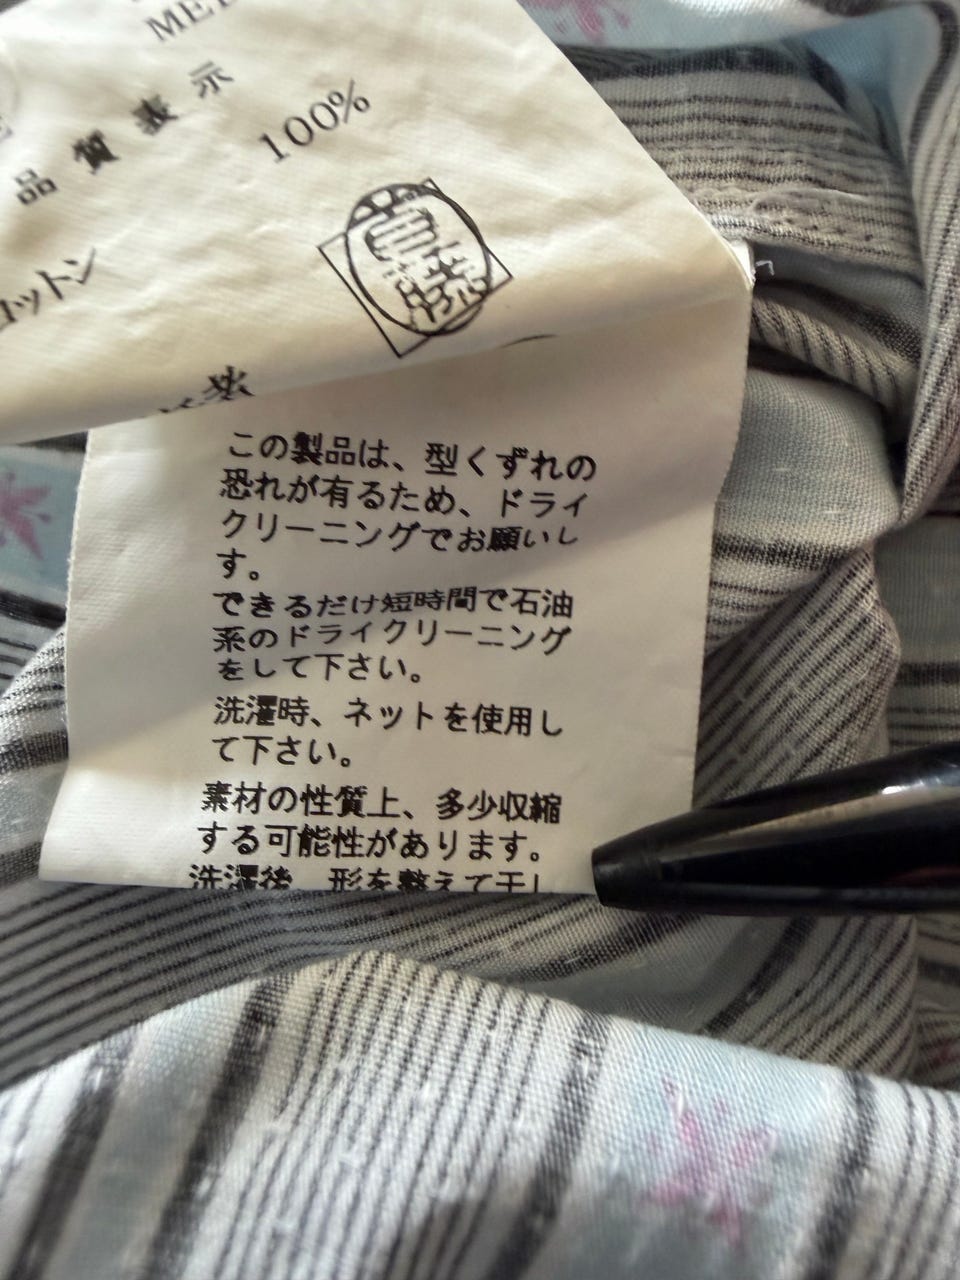 品質表示
100%
コットン
この製品は、型くずれの
恐れが有るため、ドライ
クリーニングでお願いし
す。
できるだけ短時間で石油
系のドライクリーニング
をして下さい。
洗濯時、ネットを使用し
て下さい。
素材の性質上、多少収縮
する可能性があります。
洗濯後、形を整えて干し